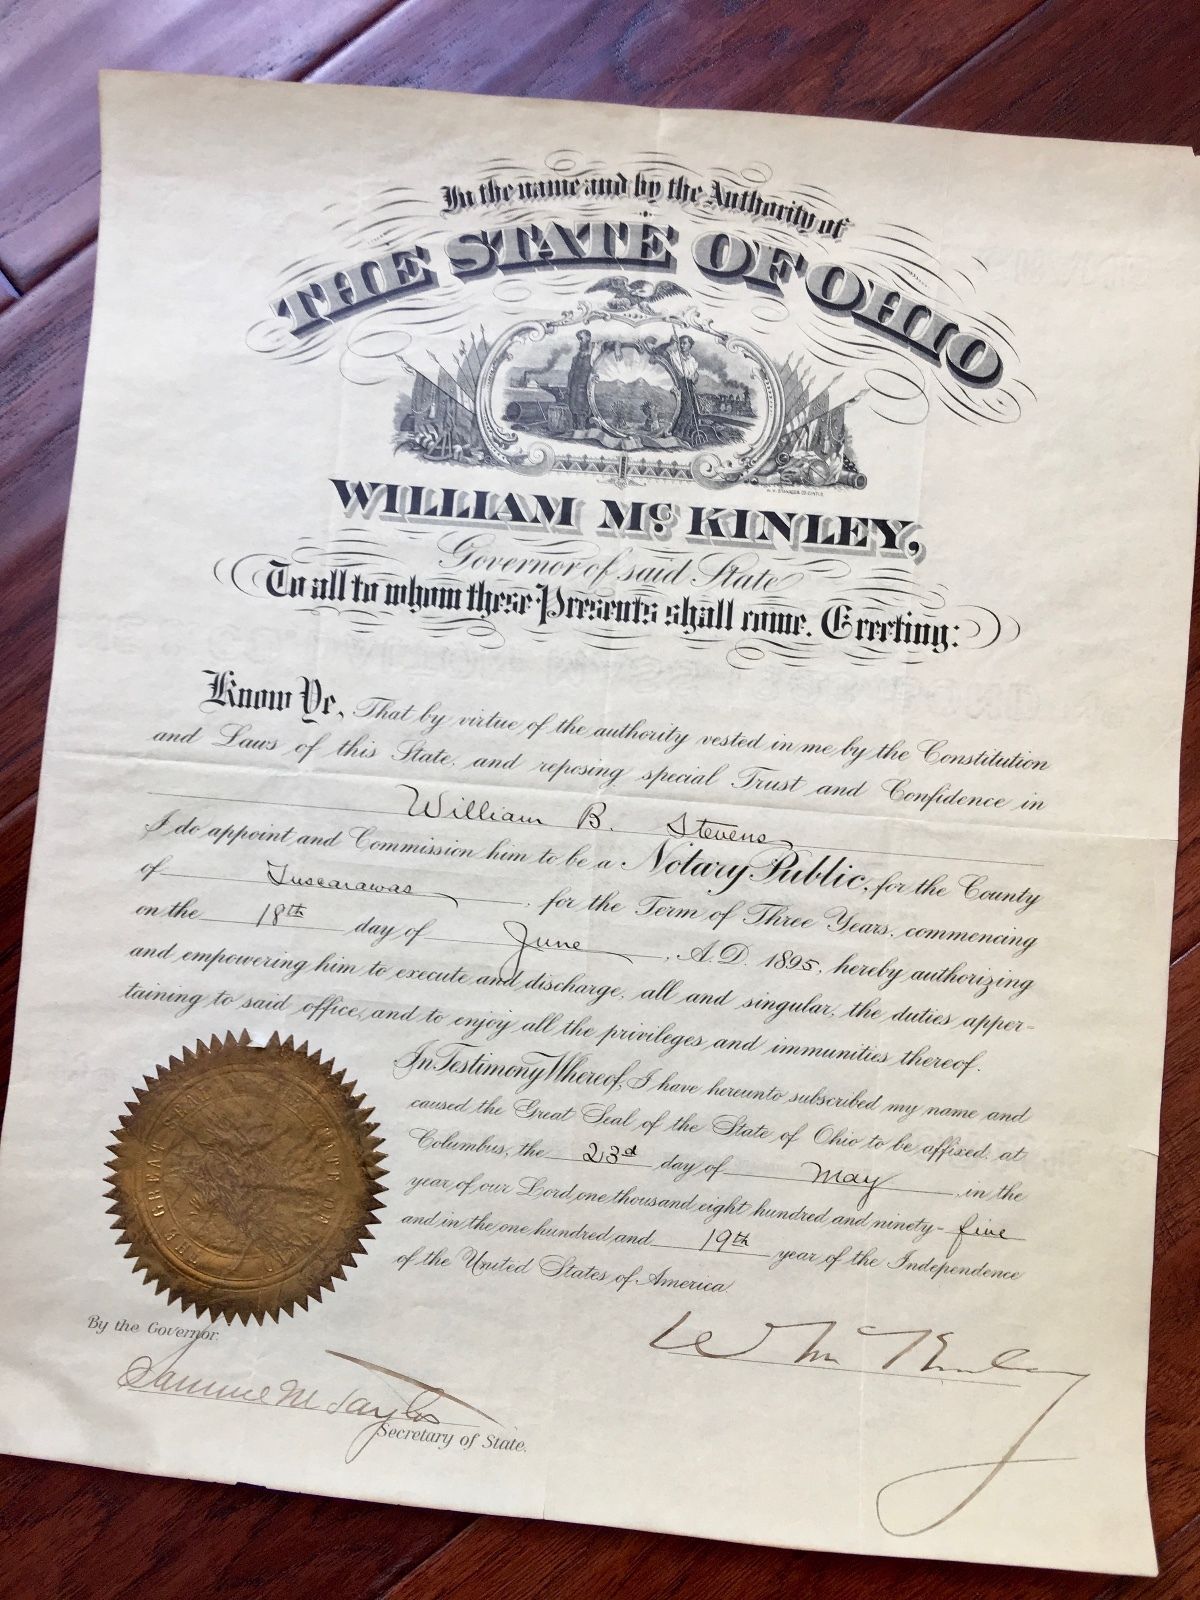 In the name and by the Authority of
THE STATE OF OHIO
WILLIAM McKINLEY,
Governor of said State
To all to whom these Presents shall come, Greeting:
Know Ye, That by virtue of the authority vested in me by the Constitution
and Laws of this State, and reposing special Trust and Confidence in
William B. Stevens
I do appoint and Commission him to be a Notary Public, for the County
of Tuscarawas, for the Term of Three Years, commencing
on the 18th day of June, A.D. 1895, hereby authorizing
and empowering him to execute and discharge, all and singular, the duties apper-
taining to said office, and to enjoy all the privileges and immunities thereof.
In Testimony Whereof, I have hereunto subscribed my name and
caused the Great Seal of the State of Ohio to be affixed, at
Columbus, the 23d day of May, in the
year of our Lord one thousand eight hundred and ninety-five
and in the one hundred and 19th year of the Independence
of the United States of America.
THE GREAT SEAL OF THE STATE OF OHIO
By the Governor.
W McKinley
Samuel M Taylor
Secretary of State.